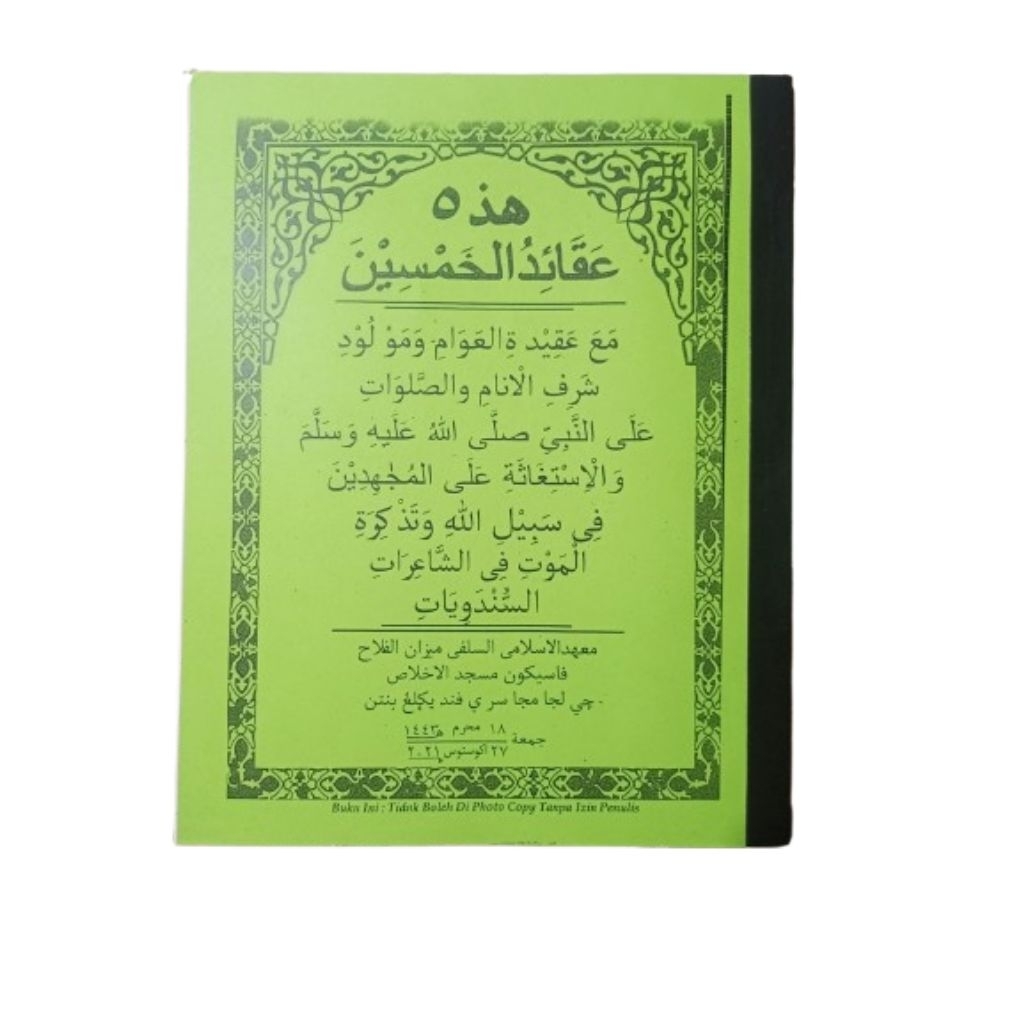 هذ ه
عَقَائِدُ الخَمْسِيْنَ
مَعَ عَقِيْد ةِ العَوَامِ وَمَوْ لُوْدِ
شَرَفِ الْانَامِ والصَّلوَاتِ
عَلَى النَّبِيّ صلَّى اللهُ عَلَيهِ وَسَلَّمَ
وَالْاِسْتِغَاثَةِ عَلَى المُجٰهِدِيْنَ
فِى سَبِيْلِ اللهِ وَتَذْ كِرَةِ
الْمَوْتِ فِى الشَّاعِرَاتِ
السُّنْدَوِيَاتِ
معهدالاسلامى السلفى ميزان الفلاح
فاسيكون مسجد الاخلاص
چي لجا مجا سر ي فند يكلڠ بنتن
جمعة ١٨ محرم ١٤٤٣ه
٢٧ اكوستوس ٢٠٢١م
Buku Ini : Tidak Boleh Di Photo Copy Tanpa Izin Penulis